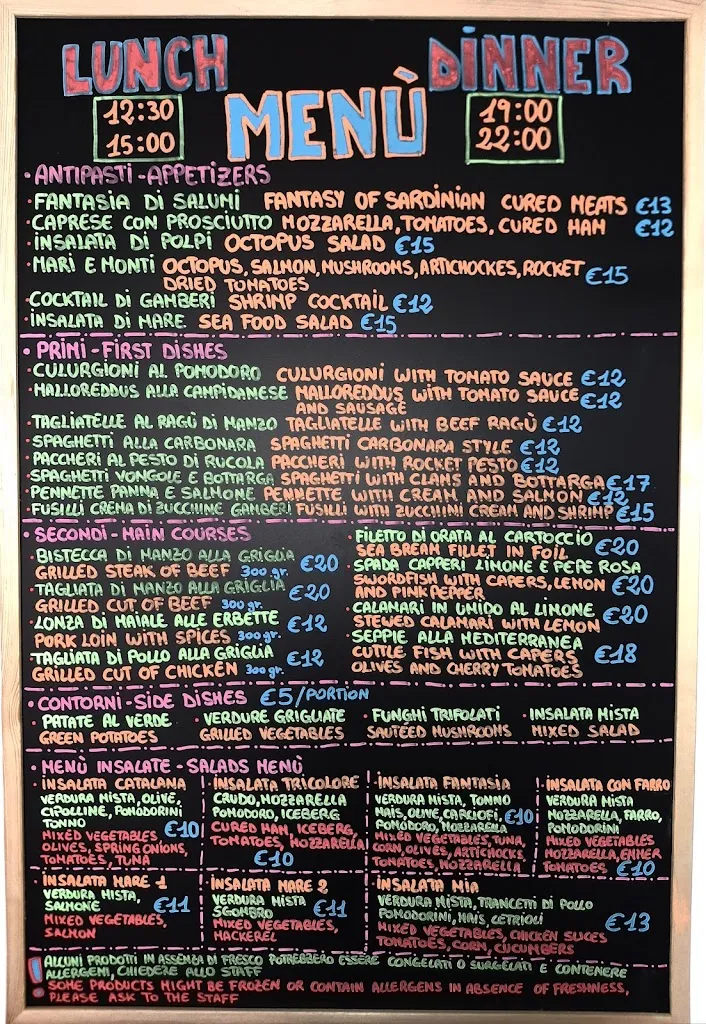 LUNCH
DINNER
12:30
15:00
MENÙ
19:00
22:00
· ANTIPASTI - APPETIZERS
· FANTASIA DI SALUMI FANTASY OF SARDINIAN CURED MEATS €13
· CAPRESE CON PROSCIUTTO MOZZARELLA, TOMATOES, CURED HAM €12
· INSALATA DI POLPI OCTOPUS SALAD €15
· MARI E MONTI OCTOPUS, SALMON, MUSHROOMS, ARTICHOCKES, ROCKET €15
DRIED TOMATOES
· COCKTAIL DI GAMBERI SHRIMP COCKTAIL €12
· INSALATA DI MARE SEA FOOD SALAD €15
· PRIMI - FIRST DISHES
· CULURGIONI AL POMODORO CULURGIONI WITH TOMATO SAUCE €12
· MALLOREDDUS ALLA CAMPIDANESE MALLOREDDUS WITH TOMATO SAUCE €12
AND SAUSAGE
· TAGLIATELLE AL RAGÙ DI MANZO TAGLIATELLE WITH BEEF RAGÙ €12
· SPAGHETTI ALLA CARBONARA SPAGHETTI CARBONARA STYLE €12
· PACCHERI AL PESTO DI RUCOLA PACCHERI WITH ROCKET PESTO €12
· SPAGHETTI VONGOLE E BOTTARGA SPAGHETTI WITH CLAMS AND BOTTARGA €17
· PENNETTE PANNA E SALMONE PENNETTE WITH CREAM AND SALMON €12
· FUSILLI CREMA DI ZUCCHINE GAMBERI FUSILLI WITH ZUCCHINI CREAM AND SHRIMP €15
· SECONDI - MAIN COURSES
· BISTECCA DI MANZO ALLA GRIGLIA €20
GRILLED STEAK OF BEEF 300 gr.
· TAGLIATA DI MANZO ALLA GRIGLIA €20
GRILLED CUT OF BEEF 300 gr.
· LONZA DI MAIALE ALLE ERBETTE €12
PORK LOIN WITH SPICES 300 gr.
TAGLIATA DI POLLO ALLA GRIGLIA €12
GRILLED CUT OF CHICKEN 300 gr.
· FILETTO DI ORATA AL CARTOCCIO €20
SEA BREAM FILLET IN FOIL
· SPADA CAPPERI LIMONE E PEPE ROSA
SWORDFISH WITH CAPERS, LEMON €20
AND PINK PEPPER
· CALAMARI IN UMIDO AL LIMONE €20
STEWED CALAMARI WITH LEMON
· SEPPIE ALLA MEDITERRANEA
CUTTLE FISH WITH CAPERS €18
OLIVES AND CHERRY TOMATOES
· CONTORNI - SIDE DISHES €5/PORTION
· PATATE AL VERDE
GREEN POTATOES
· VERDURE GRIGLIATE
GRILLED VEGETABLES
· FUNGHI TRIFOLATI
SAUTÉED MUSHROOMS
· INSALATA MISTA
MIXED SALAD
· MENÙ INSALATE - SALADS MENÙ
· INSALATA CATALANA
VERDURA MISTA, OLIVE,
CIPOLLINE, POMODORINI
TONNO €10
MIXED VEGETABLES
OLIVES, SPRING ONIONS,
TOMATOES, TUNA
· INSALATA TRICOLORE
CRUDO, MOZZARELLA
POMODORO, ICEBERG
CURED HAM, ICEBERG,
TOMATOES, MOZZARELLA
€10
· INSALATA FANTASIA
VERDURA MISTA, TONNO
MAIS, OLIVE, CARCIOFI, €10
POMODORO, MOZZARELLA
MIXED VEGETABLES, TUNA,
CORN, OLIVES, ARTICHOCKS,
TOMATOES, MOZZARELLA
· INSALATA CON FARRO
VERDURA MISTA
MOZZARELLA, FARRO,
POMODORINI
MIXED VEGETABLES
MOZZARELLA, EMMER
TOMATOES €10
· INSALATA MARE 1
VERDURA MISTA,
SALMONE €11
MIXED VEGETABLES,
SALMON
· INSALATA MARE 2
VERDURA MISTA
SGOMBRO €11
MIXED VEGETABLES,
MACKEREL
· INSALATA MIA
VERDURA MISTA, TRANCETTI DI POLLO
POMODORINI, MAIS, CETRIOLI €13
MIXED VEGETABLES, CHICKEN SLICES
TOMATOES, CORN, CUCUMBERS
! ALCUNI PRODOTTI IN ASSENZA DI FRESCO POTREBBERO ESSERE CONGELATI O SURGELATI E CONTENERE
ALLERGENI, CHIEDERE ALLO STAFF
SOME PRODUCTS MIGHT BE FROZEN OR CONTAIN ALLERGENS IN ABSENCE OF FRESHNESS,
PLEASE ASK TO THE STAFF